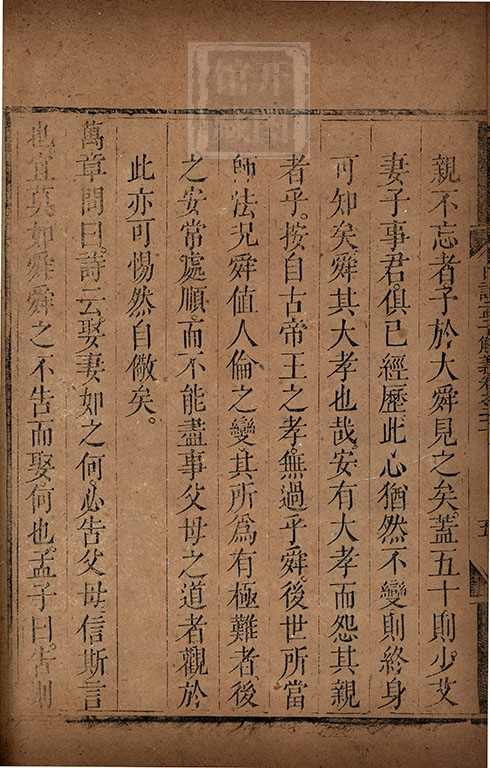 親不忘者予於大舜見之矣蓋五十則少艾
妻子事君俱已經歷此心猶然不變則終身
可知矣舜其大孝也哉安有大孝而怨其親
者乎按自古帝王之孝無過乎舜後世所當
師法況舜值人倫之變其所為有極難者後
之安常處順而不能盡事父母之道者觀於
此亦可惕然自儆矣
萬章問曰詩云娶妻如之何必告父母信斯言
也宜莫如舜舜之不告而娶何也孟子曰告則